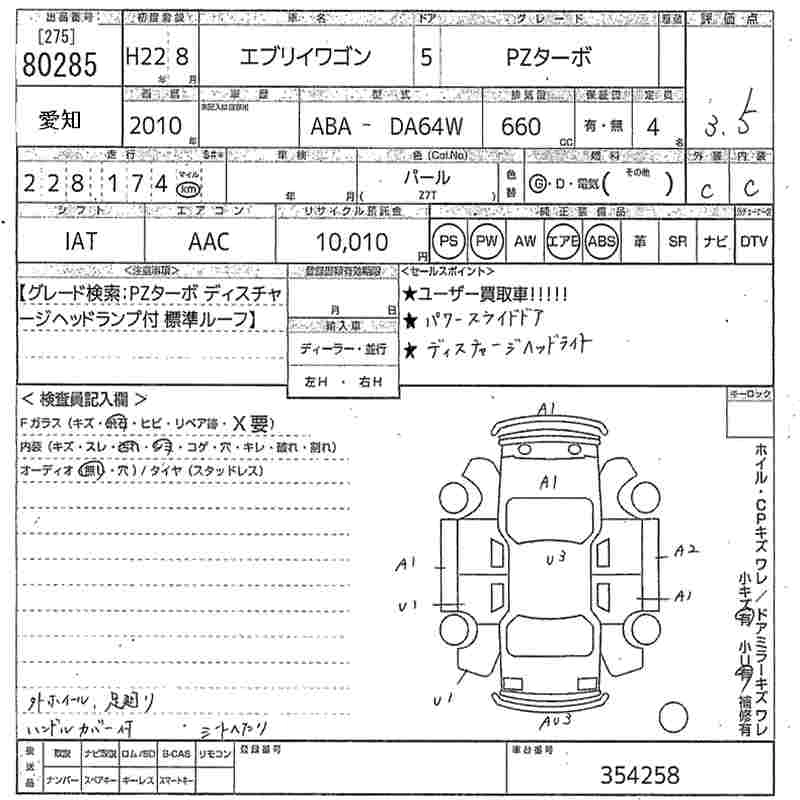 出品番号 初度登録 車名 ドア グレード 車歴 評価点
[275]
80285 H22 8 エブリイワゴン 5 PZターボ
年 月
愛知 西暦 車歴 型式 排気量 保証書 定員
2010 ABA - DA64W 660 有・無 4 3.5
年 cc 名
走行 車検 色 (Col.No) 燃料 外装 内装
228,174 マイル km 年 月 パール ( Z7T ) 色替 G・D・電気( その他 ) C C
シフト エアコン リサイクル預託金 純正装備品
IAT AAC 10,010円 PS PW AW エアB ABS 革 SR ナビ DTV
<注意事項> 登録書類有効期限 <セールスポイント>
【グレード検索:PZターボ ディスチャ ★ユーザー買取車!!!!!
ージヘッドランプ付 標準ルーフ】 月 日 ★ パワースライドドア
輸入車 ★ ディスチャージヘッドライト
ディーラー・並行
左H ・ 右H
< 検査員記入欄 > キーロック
Fガラス (キズ・飛石・ヒビ・リペア跡・X要)
内装 (キズ・スレ・汚れ・シミ・コゲ・穴・キレ・破れ・割れ)
オーディオ (無し・穴) / タイヤ (スタッドレス)
A1
A1
U3
A1 A2
U1 A1
U1
AU3
ホイル・CPキズ ワレ / ドアミラーキズ ワレ
小キズ有 小U有 / 補修有
外ホイール、足廻り
ハンドルカバー付 シートヘたり
後送品 取説 ナビ取説 ロム/SD B-CAS リモコン 登録番号 車台番号
ナンバー スペアキー キーレス スマートキー 354258